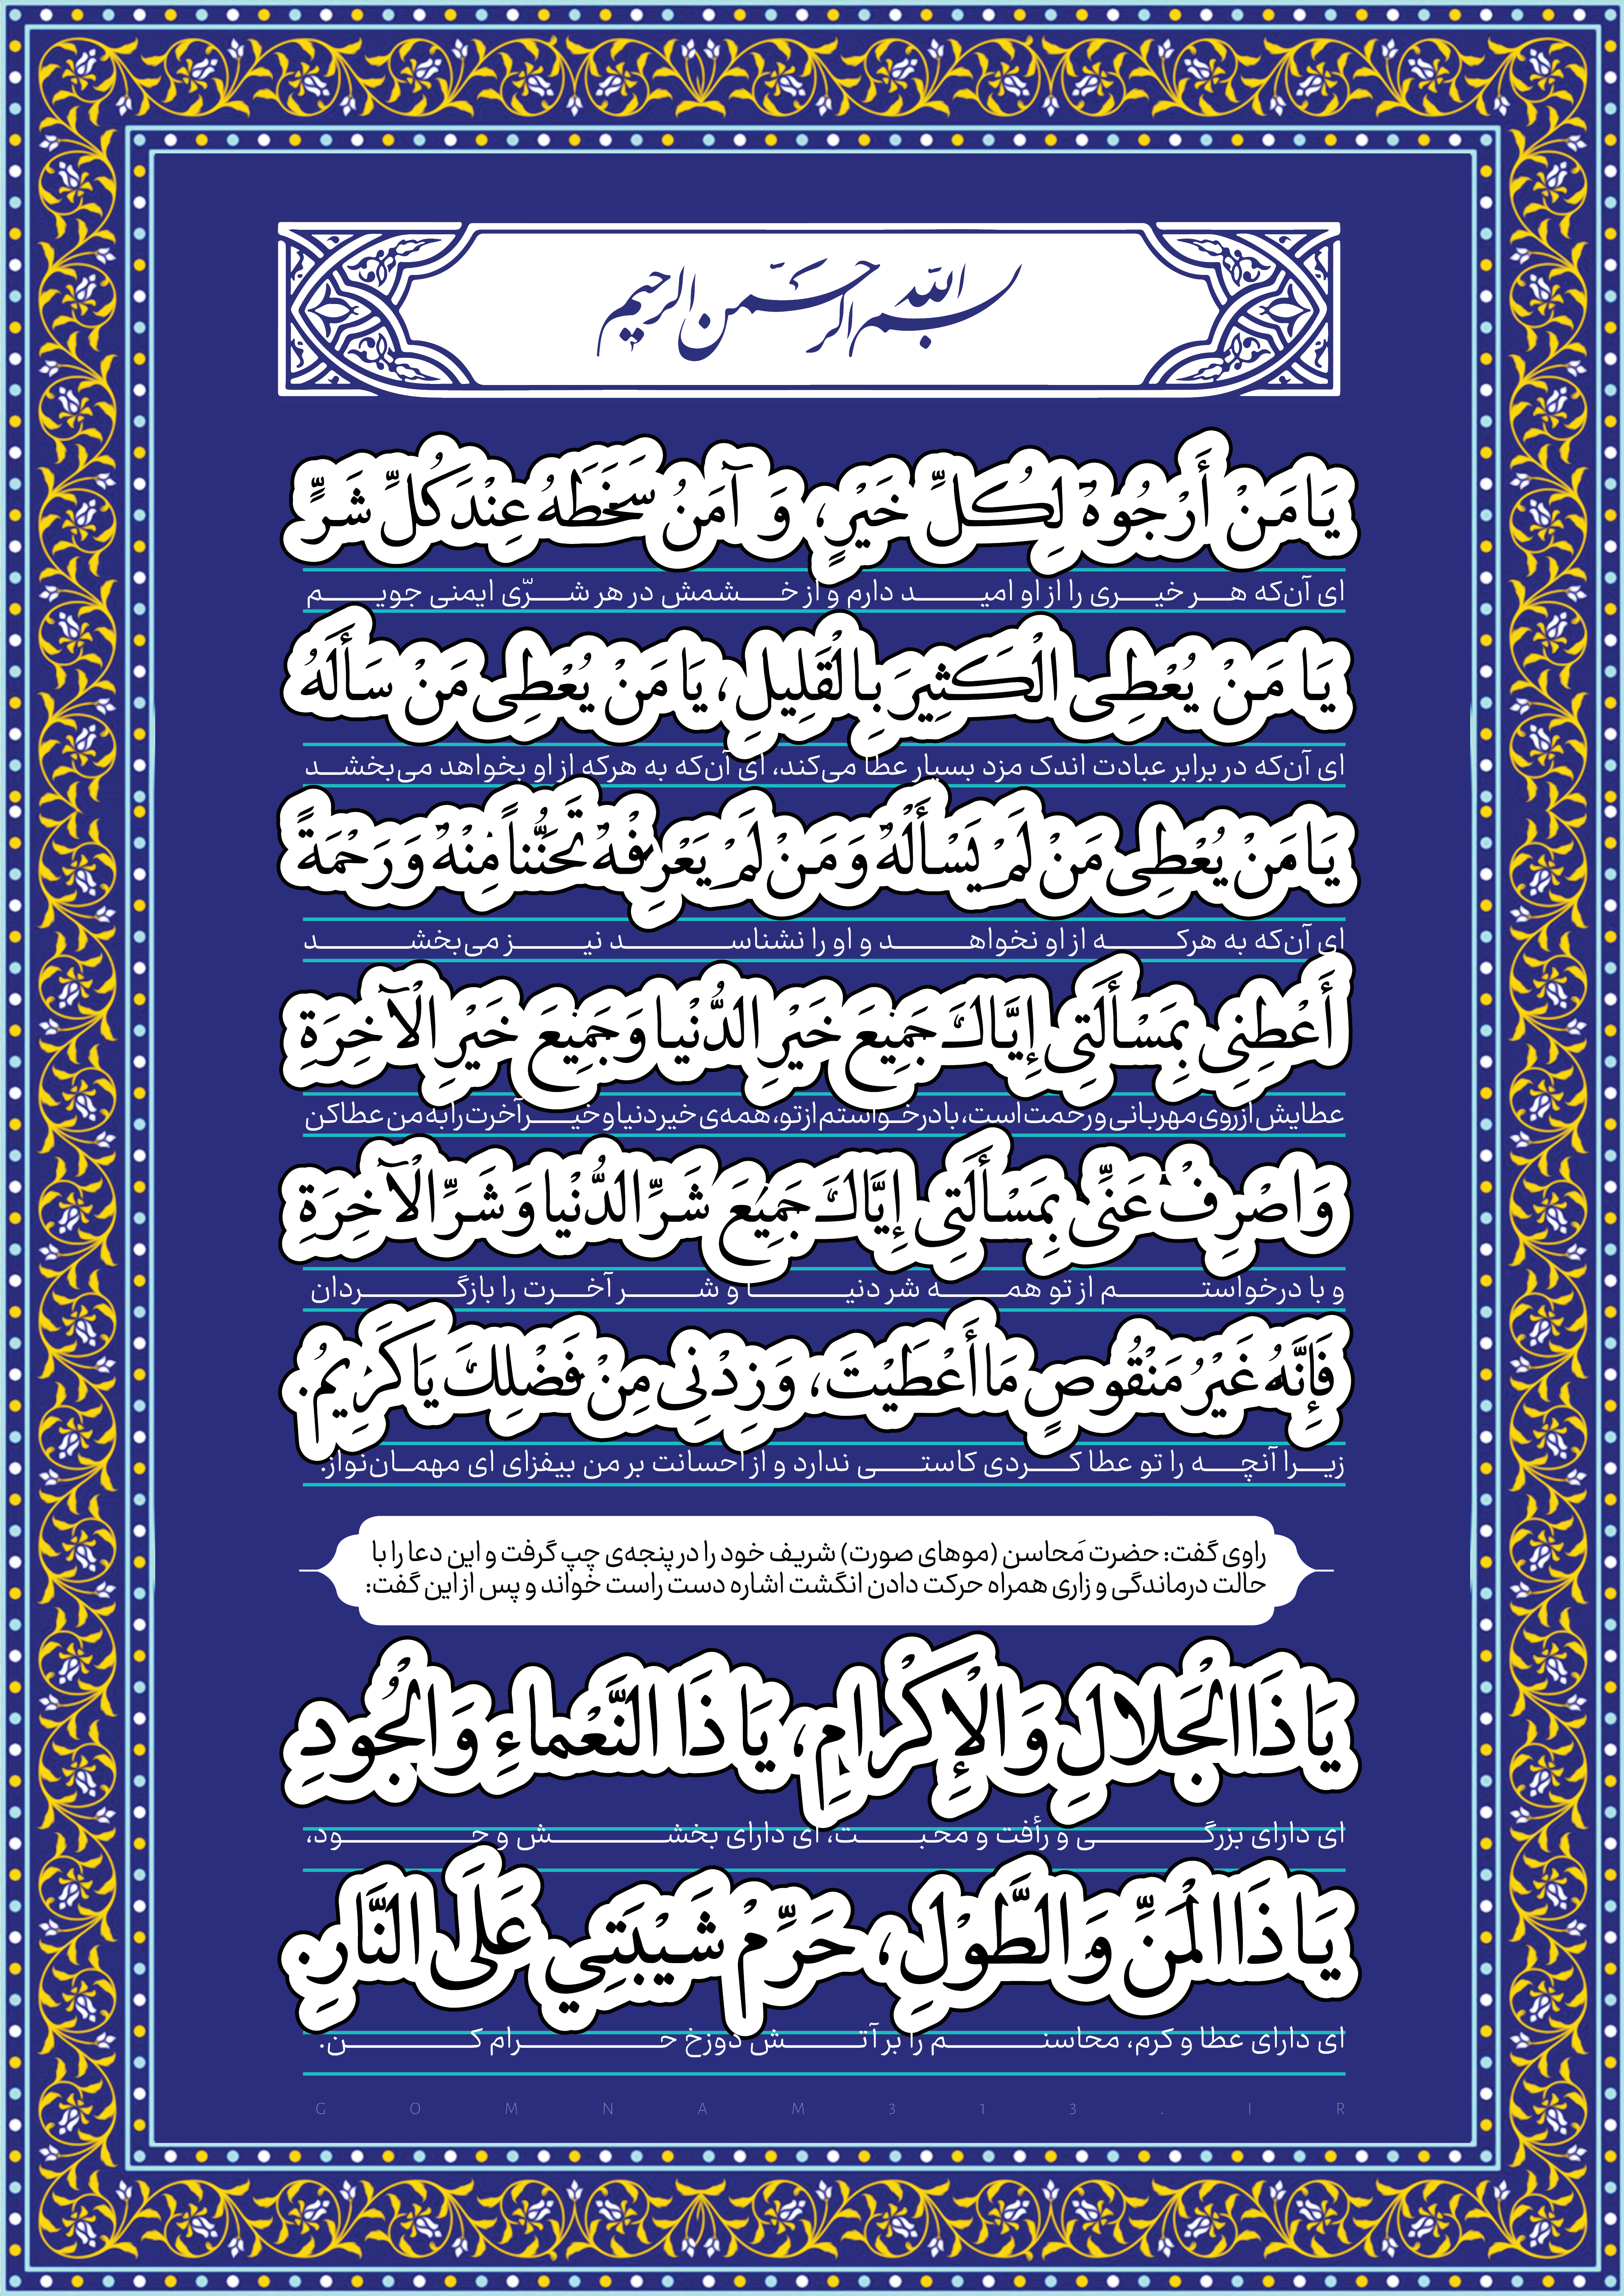 بسم الله الرحمن الرحیم
یَا مَنْ أَرْجُوهُ لِکُلِّ خَیْرٍ، وَ آمَنُ سَخَطَهُ عِنْدَ کُلِّ شَرٍّ
ای آن‌که هر خیری را از او امید دارم و از خشمش در هر شرّی ایمنی جویم
یَا مَنْ یُعْطِی الْکَثِیرَ بِالْقَلِیلِ، یَا مَنْ یُعْطِی مَنْ سَأَلَهُ
ای آن‌که در برابر عبادت اندک مزد بسیار عطا می‌کند، ای آن‌که به هرکه از او بخواهد می‌بخشد
یَا مَنْ یُعْطِی مَنْ لَمْ یَسْأَلْهُ وَ مَنْ لَمْ یَعْرِفْهُ تَحَنُّناً مِنْهُ وَ رَحْمَةً
ای آن‌که به هرکه از او نخواهد و او را نشناسد نیز می‌بخشد
أَعْطِنِی بِمَسْأَلَتِی إِیَّاكَ جَمِیعَ خَیْرِ الدُّنْیا وَ جَمِیعَ خَیْرِ الْآخِرَةِ
عطایش از روی مهربانی و رحمت است، با درخواستم از تو، همه‌ی خیر دنیا و خیر آخرت را به من عطا کن
وَ اصْرِفْ عَنِّی بِمَسْأَلَتِی إِیَّاكَ جَمِیعَ شَرِّ الدُّنْیا وَ شَرِّ الْآخِرَةِ
و با درخواستم از تو همه شر دنیا و شر آخرت را بازگردان
فَإِنَّهُ غَیْرُ مَنْقُوصٍ مَا أَعْطَیْتَ، وَ زِدْنِی مِنْ فَضْلِكَ یَا کَرِیمُ.
زیرا آنچه را تو عطا کردی کاستی ندارد و از احسانت بر من بیفزای ای مهمان‌نواز.
راوی گفت: حضرت مَحاسن (موهای صورت) شریف خود را در پنجه‌ی چپ گرفت و این دعا را با
حالت درماندگی و زاری همراه حرکت دادن انگشت اشاره دست راست خواند و پس از این گفت:
یَا ذَا الْجَلالِ وَ الْإِکْرامِ، یَا ذَا النَّعْماءِ وَ الْجُودِ
ای دارای بزرگی و رأفت و محبت، ای دارای بخشش و جود،
یَا ذَا الْمَنِّ وَ الطَّوْلِ، حَرِّمْ شَیْبَتِي عَلَی النَّارِ.
ای دارای عطا و کرم، محاسنم را بر آتش دوزخ حرام کن.
GOMNAM313.IR